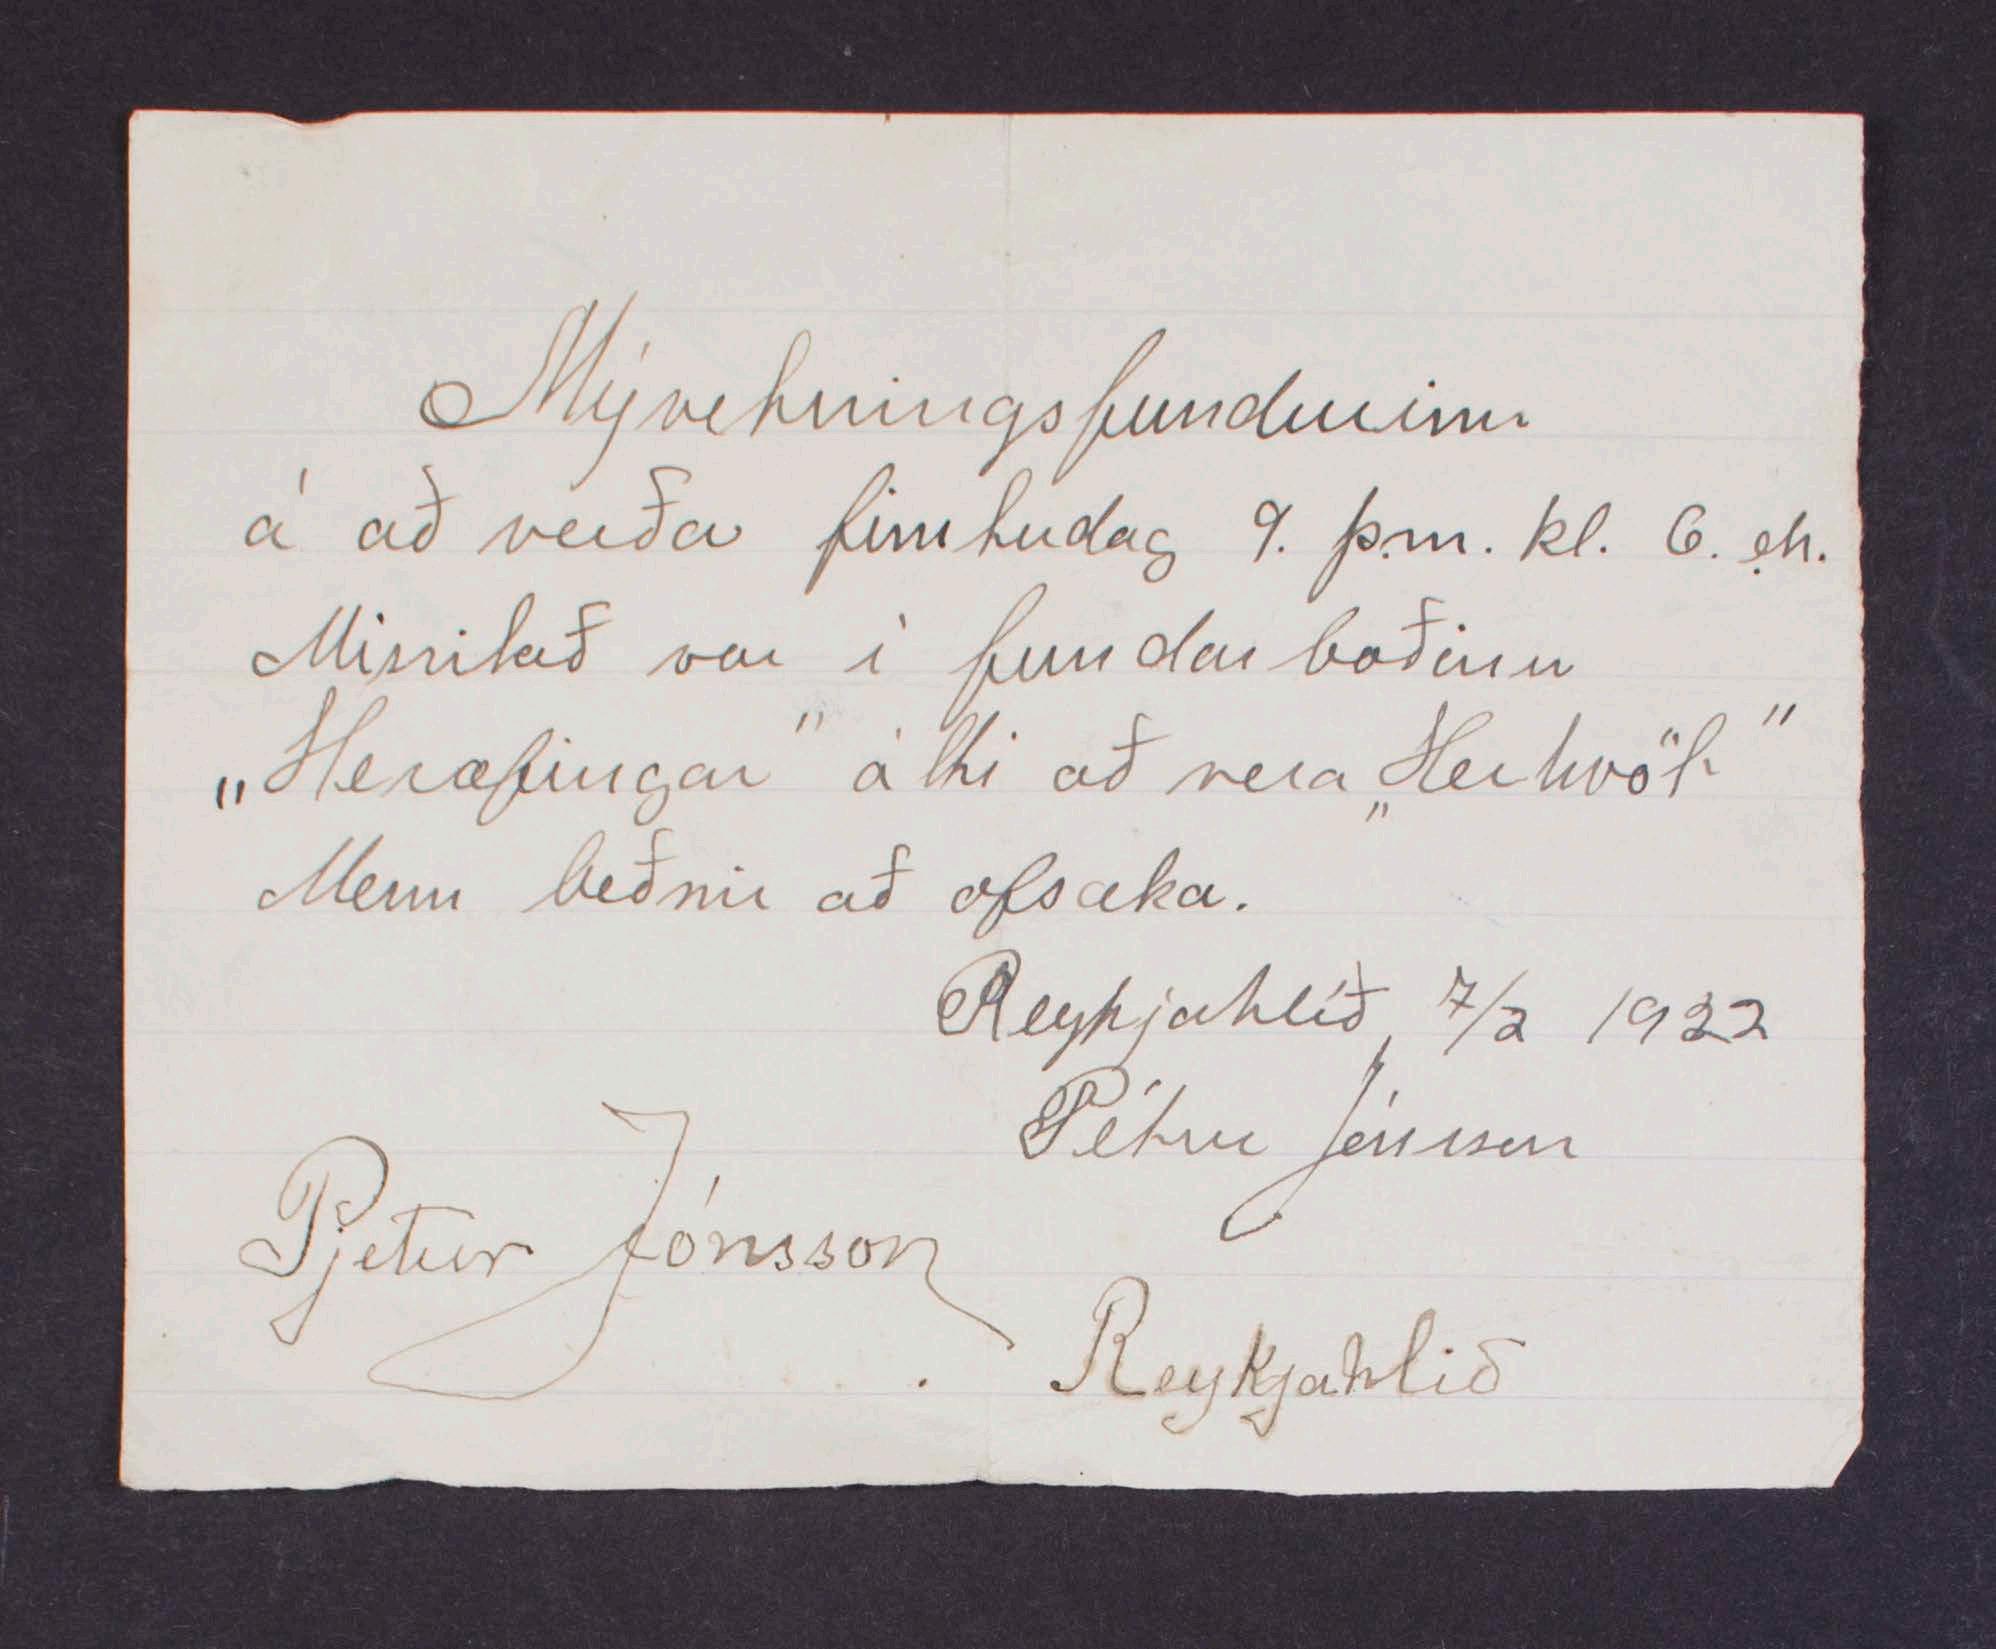 Mývetningsfundurinn
á að verða fimtudag 9. þ.m. kl. 6. eh.
Misritað var í fundarboðinu
„Heræfingar" átti að vera „Herhvöt"
Menn beðnir að afsaka.
Reykjahlíð, 7/2 1922
Pétur Jónsson
Pjetur Jónsson
Reykjahlið